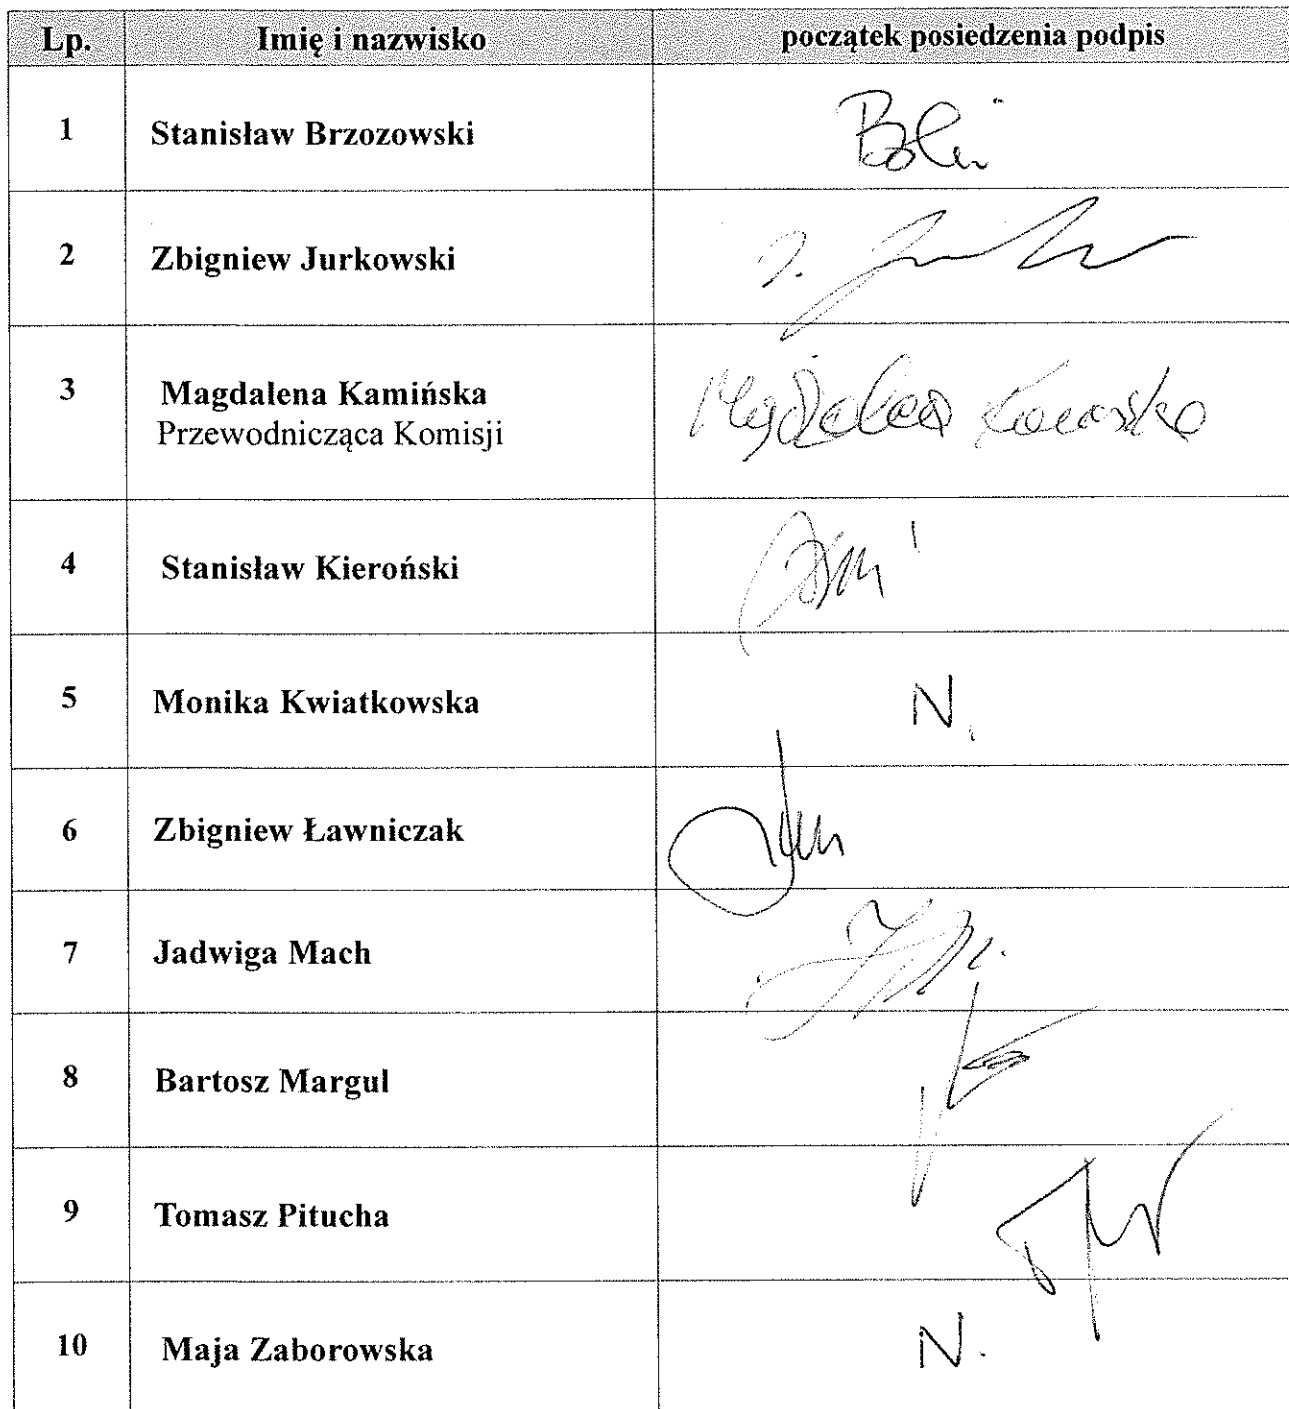 Lp. Imię i nazwisko początek posiedzenia podpis
1 Stanisław Brzozowski
2 Zbigniew Jurkowski
3 Magdalena Kamińska
Przewodnicząca Komisji
4 Stanisław Kieroński
5 Monika Kwiatkowska N.
6 Zbigniew Ławniczak
7 Jadwiga Mach
8 Bartosz Margul
9 Tomasz Pitucha
10 Maja Zaborowska N.